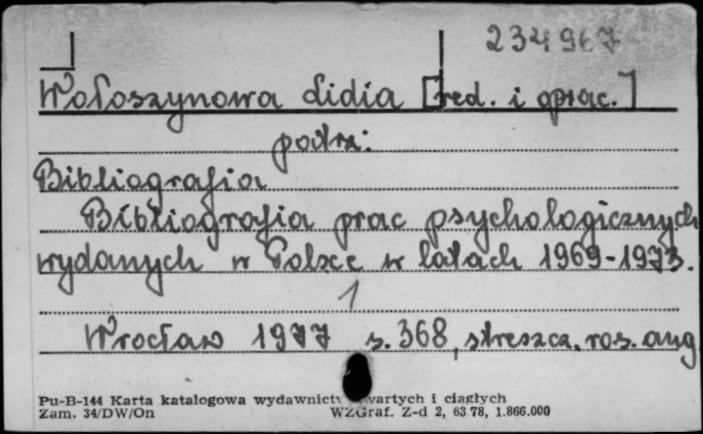 234967
Wołoszynowa Lidia [red. i oprac.]
patrz:
Bibliografia
Bibliografia prac psychologicznych
wydanych w Polsce w latach 1969-1973.
1
Wrocław 1977 s. 368, streszcz. ros. ang
Pu-B-144 Karta katalogowa wydawnictw zwartych i ciągłych
Zam. 34/DW/On WZGraf. Z-d 2, 63.78, 1.866.000